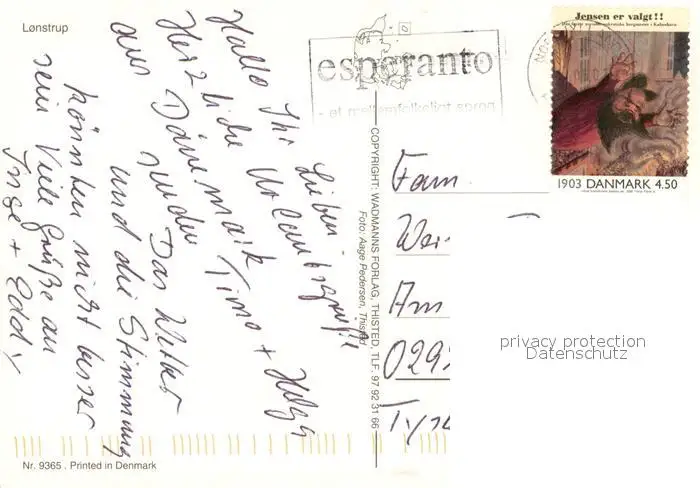 Lønstrup
Hallo Ihr Lieben
Herzliche Urlaubsgrüße
aus Dänemark Timo + Helga
senden Das Wetter
und die Stimmung
könnten nicht besser
sein Viele Grüße an
Inge + Eddy
Nr. 9365 . Printed in Denmark
COPYRIGHT: WADMANNS FORLAG, THISTED, TLF. 97 92 31 66
Foto: Aage Pedersen, Thisted
esperanto
- et mellemfolkeligt sprog
Jensen er valgt!!
1903 DANMARK 4.50
Fam.
Am
privacy protection
Datenschutz